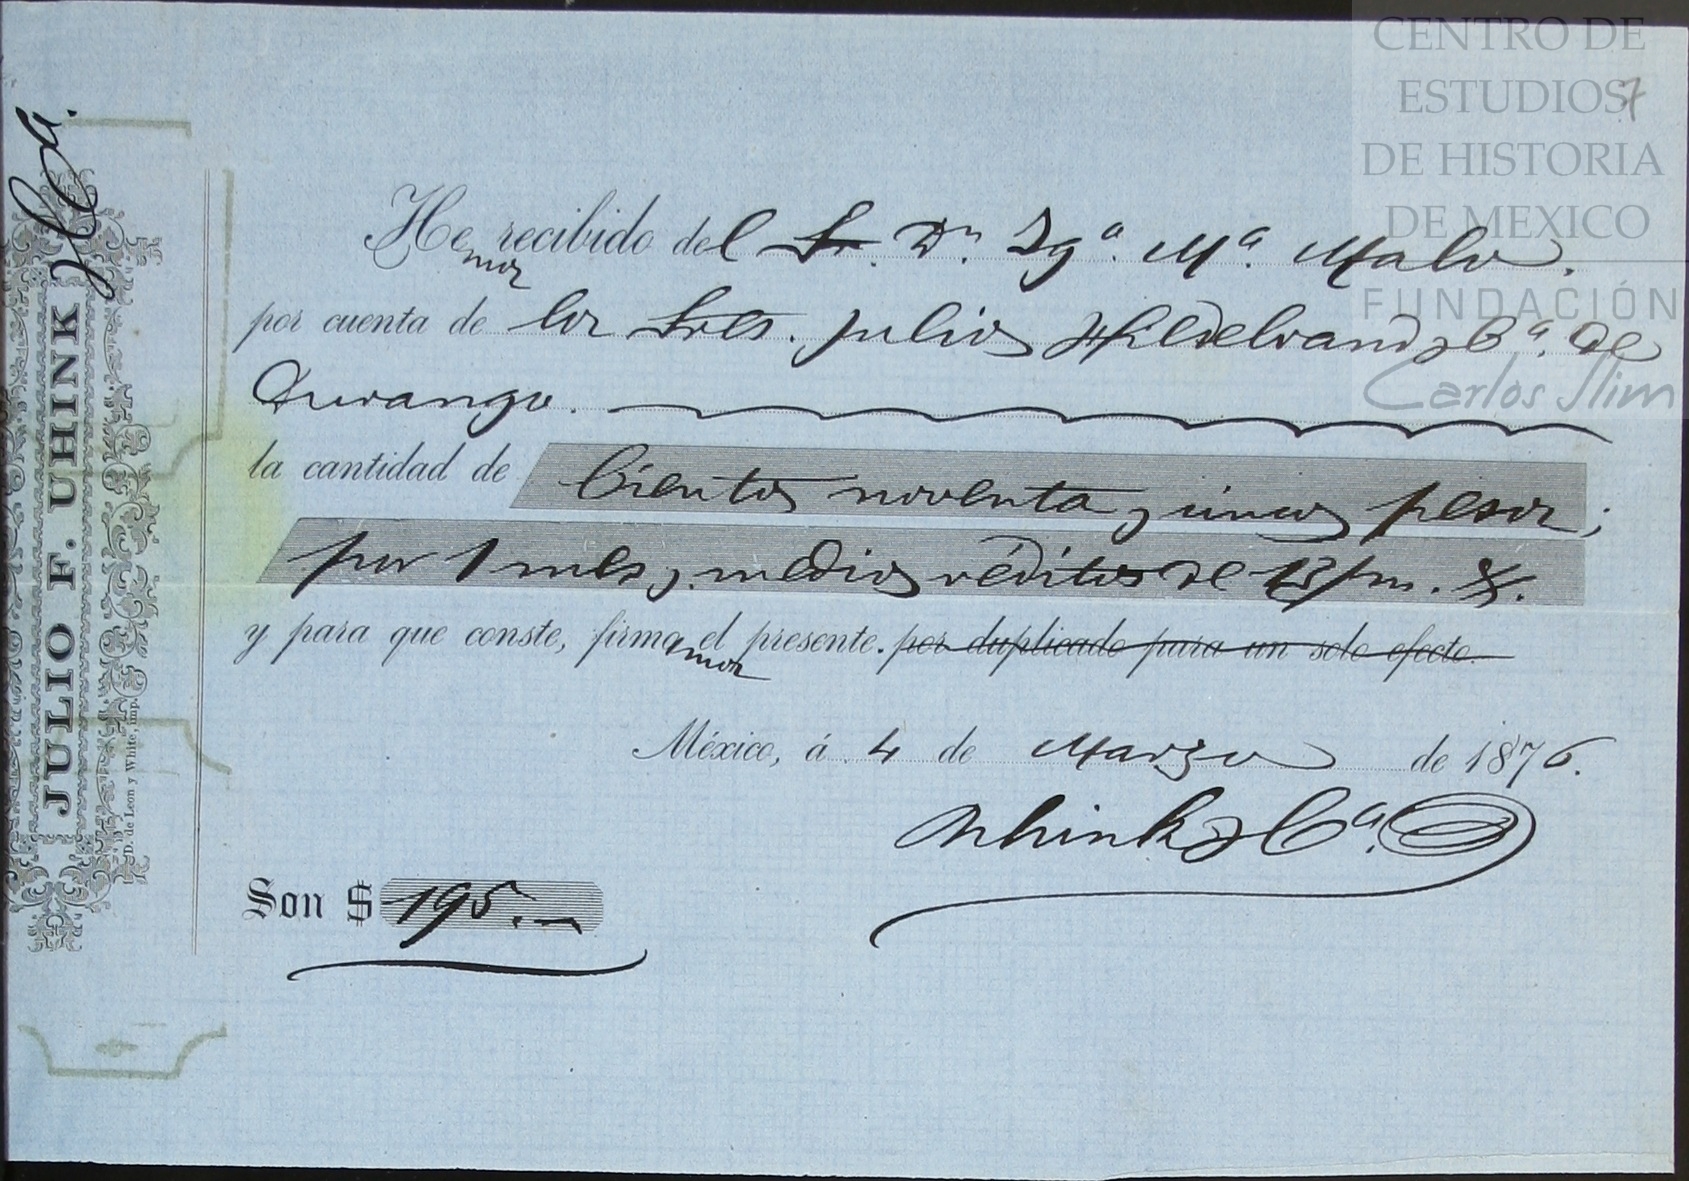 CENTRO DE
ESTUDIOS
DE HISTORIA
DE MEXICO
FUNDACIÓN
Carlos Slim
7
JULIO F. UHINK y Ca.
D. de Leon y White, imp.
Hemos recibido del Sr. Dn. Ygo. Ma. Malo.
por cuenta de los Sres. Julio Hildebrand y Ca. de
Durango.
la cantidad de Ciento noventa y cinco pesos;
por 1 mes y medio réditos de
y para que conste, firmamos el presente. por duplicado para un solo efecto.
México, á 4 de Marzo de 1876.
Uhink y Ca.
Son $ 195.—